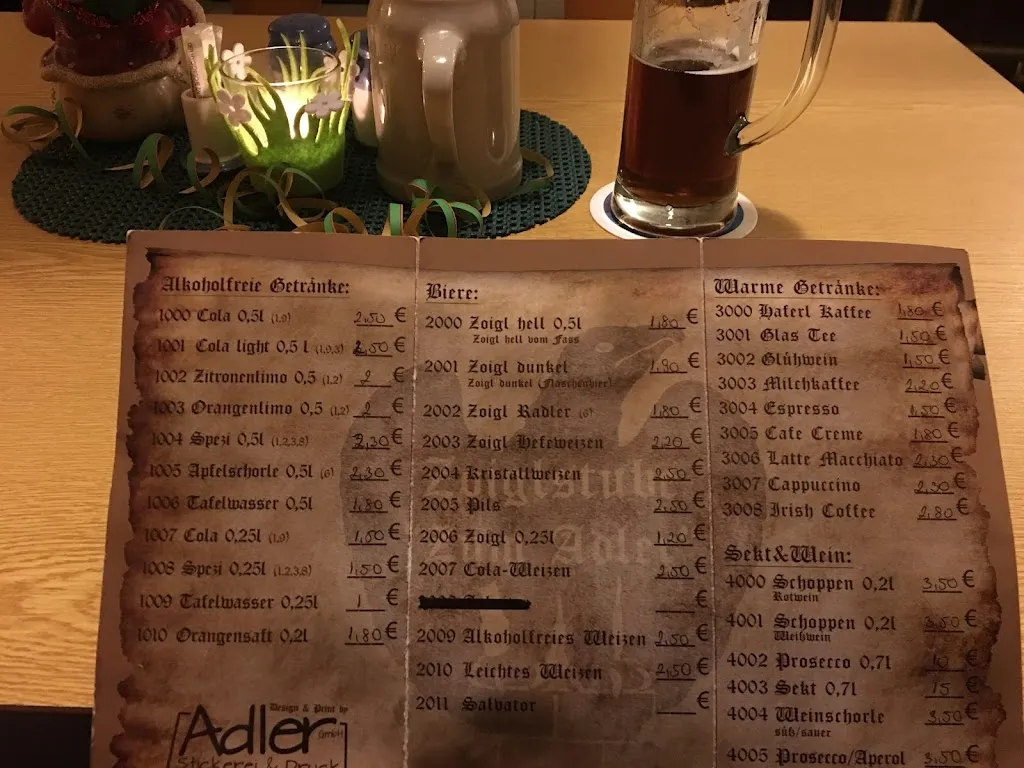 Alkoholfreie Getränke:
1000 Cola 0,5l (1,9) 2,50 €
1001 Cola light 0,5 l (1,9,3) 2,50 €
1002 Zitronenlimo 0,5 (1,2) 2 €
1003 Orangenlimo 0,5 (1,2) 2 €
1004 Spezi 0,5l (1,2,3,8) 2,30 €
1005 Apfelschorle 0,5l (6) 2,30 €
1006 Tafelwasser 0,5l 1,80 €
1007 Cola 0,25l (1,9) 1,50 €
1008 Spezi 0,25l (1,2,3,8) 1,50 €
1009 Tafelwasser 0,25l 1 €
1010 Orangensaft 0,2l 1,80 €
Design & Print by
Adler GmbH
Stickerei & Druck
Biere:
2000 Zoigl hell 0,5l 1,80 €
Zoigl hell vom Fass
2001 Zoigl dunkel 1,80 €
Zoigl dunkel (Flaschenbier)
2002 Zoigl Radler (6) 1,80 €
2003 Zoigl Hefeweizen 2,20 €
2004 Kristallweizen 2,50 €
2005 Pils 2,50 €
2006 Zoigl 0,25l 1,20 €
2007 Cola-Weizen 2,50 €
€
2009 Alkoholfreies Weizen 2,50 €
2010 Leichtes Weizen 2,50 €
2011 Salvator €
Warme Getränke:
3000 Haferl Kaffee 1,80 €
3001 Glas Tee 1,50 €
3002 Glühwein 1,50 €
3003 Milchkaffee 2,20 €
3004 Espresso 1,50 €
3005 Cafe Creme 1,80 €
3006 Latte Macchiato 2,30 €
3007 Cappuccino 2,30 €
3008 Irish Coffee 2,80 €
Sekt&Wein:
4000 Schoppen 0,2l 3,50 €
Rotwein
4001 Schoppen 0,2l 3,50 €
Weißwein
4002 Prosecco 0,7l 10 €
4003 Sekt 0,7l 15 €
4004 Weinschorle 3,50 €
süß/sauer
4005 Prosecco/Aperol 3,50 €